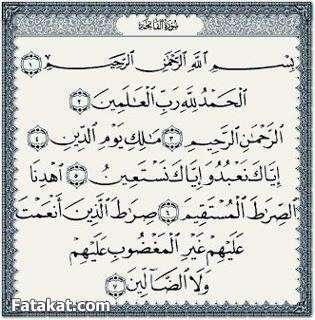 سُورَةُ الفَاتِحَةِ
بِسْمِ اللَّهِ الرَّحْمَٰنِ الرَّحِيمِ ١
الْحَمْدُ لِلَّهِ رَبِّ الْعَالَمِينَ ٢
الرَّحْمَٰنِ الرَّحِيمِ ٣ مَالِكِ يَوْمِ الدِّينِ ٤
إِيَّاكَ نَعْبُدُ وَإِيَّاكَ نَسْتَعِينُ ٥ اهْدِنَا
الصِّرَاطَ الْمُسْتَقِيمَ ٦ صِرَاطَ الَّذِينَ أَنْعَمْتَ
عَلَيْهِمْ غَيْرِ الْمَغْضُوبِ عَلَيْهِمْ
وَلَا الضَّالِّينَ ٧
Fatakat.com